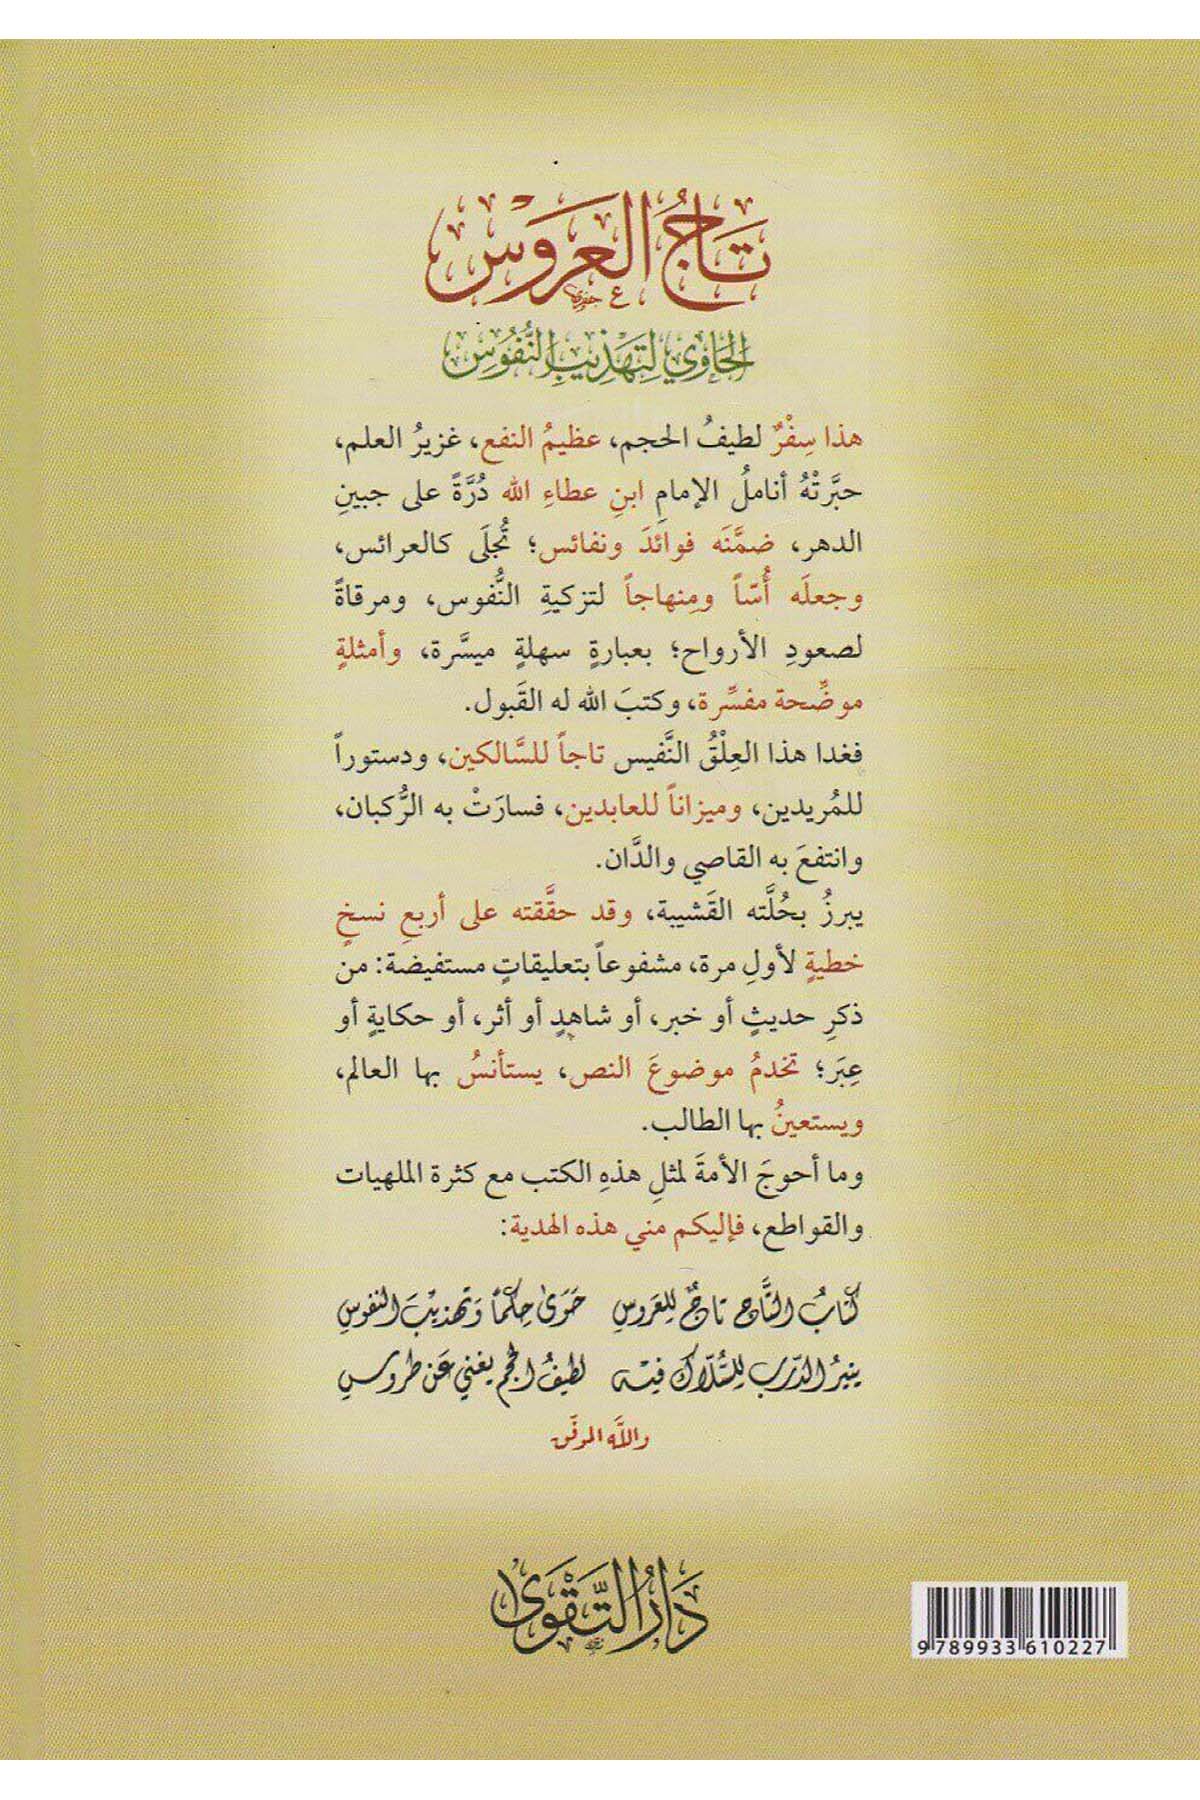 تَاجُ العَرُوسْ
الحَاوِي لِتَهْذِيبِ النُّفُوسْ
هذا سِفْرٌ لطيفُ الحجم، عظيمُ النفع، غزيرُ العلم،
حبَّرتْهُ أناملُ الإمامِ ابنِ عطاءِ الله دُرَّةً على جبينِ
الدهر، ضمَّنَه فوائدَ ونفائس؛ تُجلَى كالعرائس،
وجعلَه أُسّاً ومِنهاجاً لتزكيةِ النُّفوس، ومرقاةً
لصعودِ الأرواح؛ بعبارةٍ سهلةٍ ميسَّرة، وأمثلةٍ
موضِّحة مفسِّرة، وكتبَ الله له القَبول.
فغدا هذا العِلْقُ النَّفيس تاجاً للسَّالكين، ودستوراً
للمُريدين، وميزاناً للعابدين، فسارَتْ به الرُّكبان،
وانتفعَ به القاصي والدَّان.
يبرزُ بحُلَّته القَشيبة، وقد حقَّقته على أربعِ نسخٍ
خطيةٍ لأولِ مرة، مشفوعاً بتعليقاتٍ مستفيضة: من
ذكرِ حديثٍ أو خبر، أو شاهدٍ أو أثر، أو حكايةٍ أو
عِبَر؛ تخدمُ موضوعَ النص، يستأنسُ بها العالم،
ويستعينُ بها الطالب.
وما أحوجَ الأمةَ لمثلِ هذهِ الكتب مع كثرة الملهيات
والقواطع، فإليكم مني هذه الهدية:
كتابُ التَّاج تاجٌ للعَروسِ حَوَى حِكَمًا وَتهذيْبَ النفوسِ
ينيرُ الدّربَ للسُّلّاك فيْه لطيفُ الحجم يغني عَن طروسِ
والله الموفّق
دَارُ التَّقْوَى
9 789933 610227